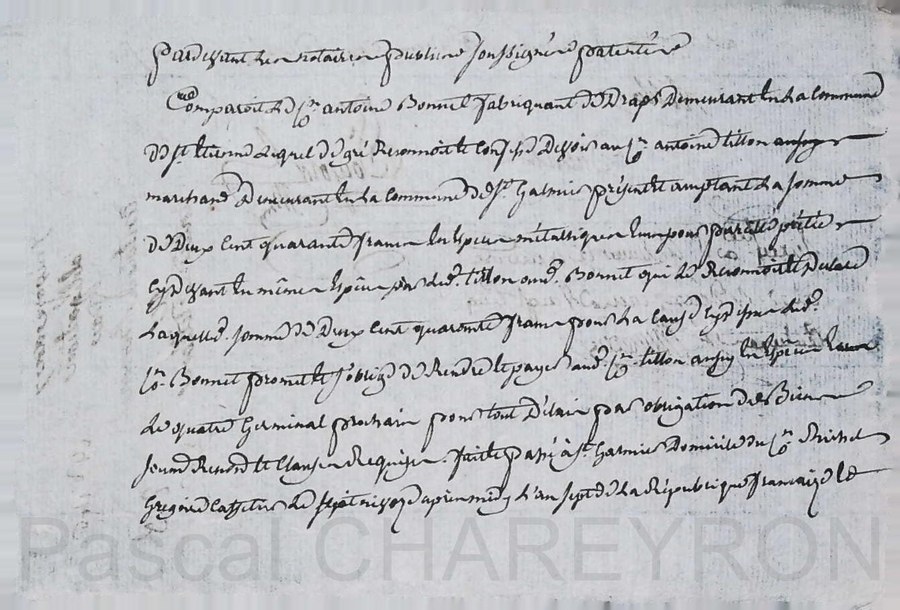 Pardevant les notaires publics soussignés patentés
Comparoit le Cn antoine Bonnet fabriquant de Draps Demeurant en la Commune
de St Etienne lequel de gré Reconnoit et Confesse Devoir au Cn antoine tillon
marchand Demeurant en la Commune de St Galmier présent et acceptant la somme
de Deux Cent quarante francs En Espèces métalliques Pour pareille prêtée
Cydevant En mêmes Espèces par led. tillon aud. Bonnet qui le Reconnoit
Laquelle somme de Deux Cent quarante francs pour la Cause Led.
Cn Bonnet promet et s'oblige de Rendre et payer aud. Cn tillon
Le quatre Germinal prochain pour tout Délai par obligation de Biens
Soumis Renond et Clauses Requises. fait et passé à St Galmier Domicile du Cn
Gregoire le sept nivose après midy L'an sept de la République française
Pascal CHAREYRON